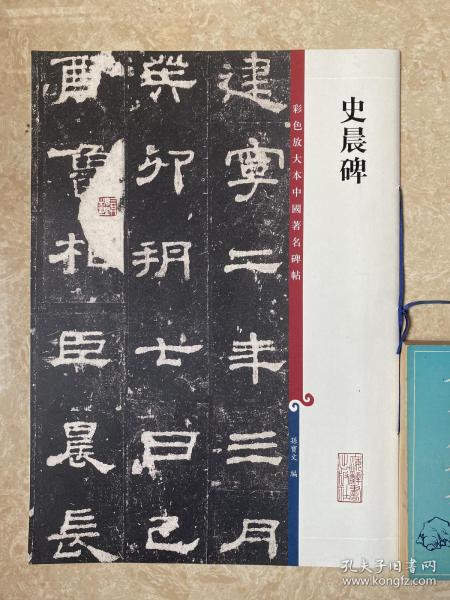 史晨碑
彩色放大本中國著名碑帖
孫寶文 編
建寧二年三月
癸卯朔七日己
酉魯相臣晨長
孔夫子旧书网
www.kongfz.com